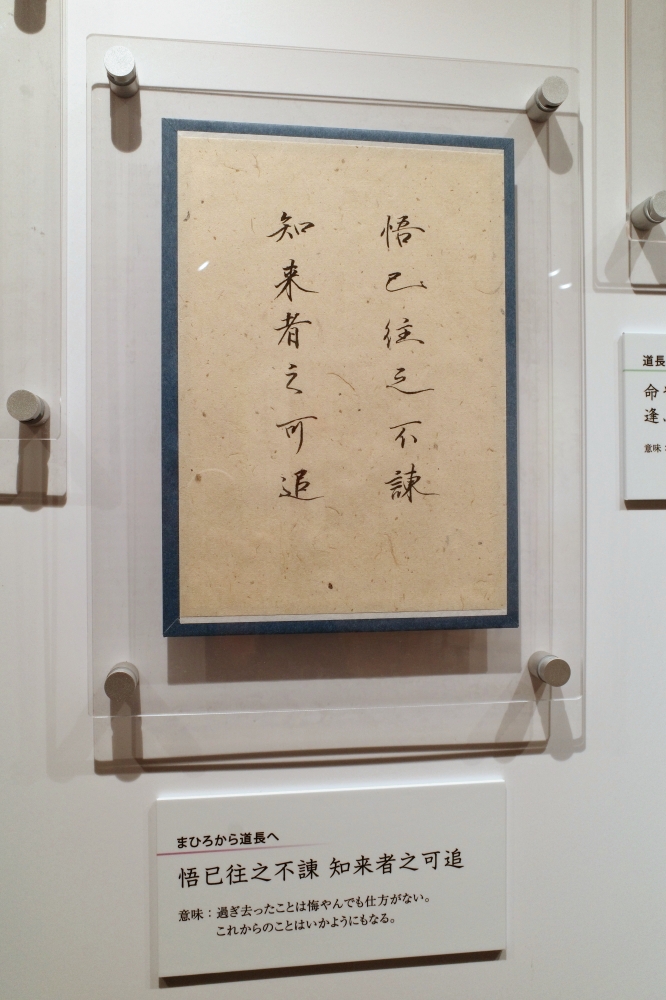 悟已往之不諌
知来者之可追
まひろから道長へ
悟已往之不諌 知来者之可追
意味：過ぎ去ったことは悔やんでも仕方がない。
これからのことはいかようにもなる。
道長
命
逢
意味：